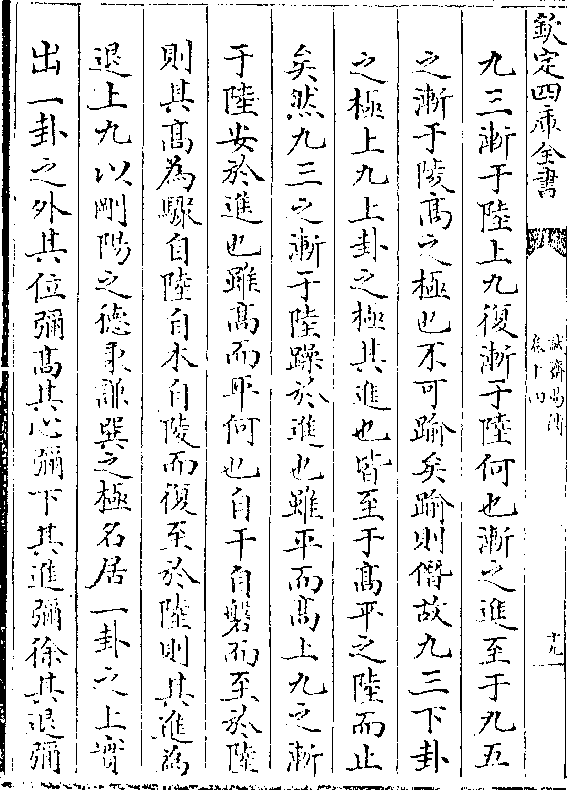 欽定四庫全書
誠齋易傳
卷十四
十九
九三漸于陸上九復漸于陸何也漸之進至于九五
之漸于陵高之極也不可踰矣踰則僭故九三下卦
之極上九上卦之極其進也皆至于髙平之陸而止
矣然九三之漸于陸躁於進也雖平而髙上九之漸
于陸安於進也雖髙而平何也自干自磐而至於陸
則其髙為驟自陸自木自陵而復至於陸則其進為
退上九以剛陽之德秉謙巽之極名居一卦之上實
出一卦之外其位彌髙其心彌下其進彌徐其退彌